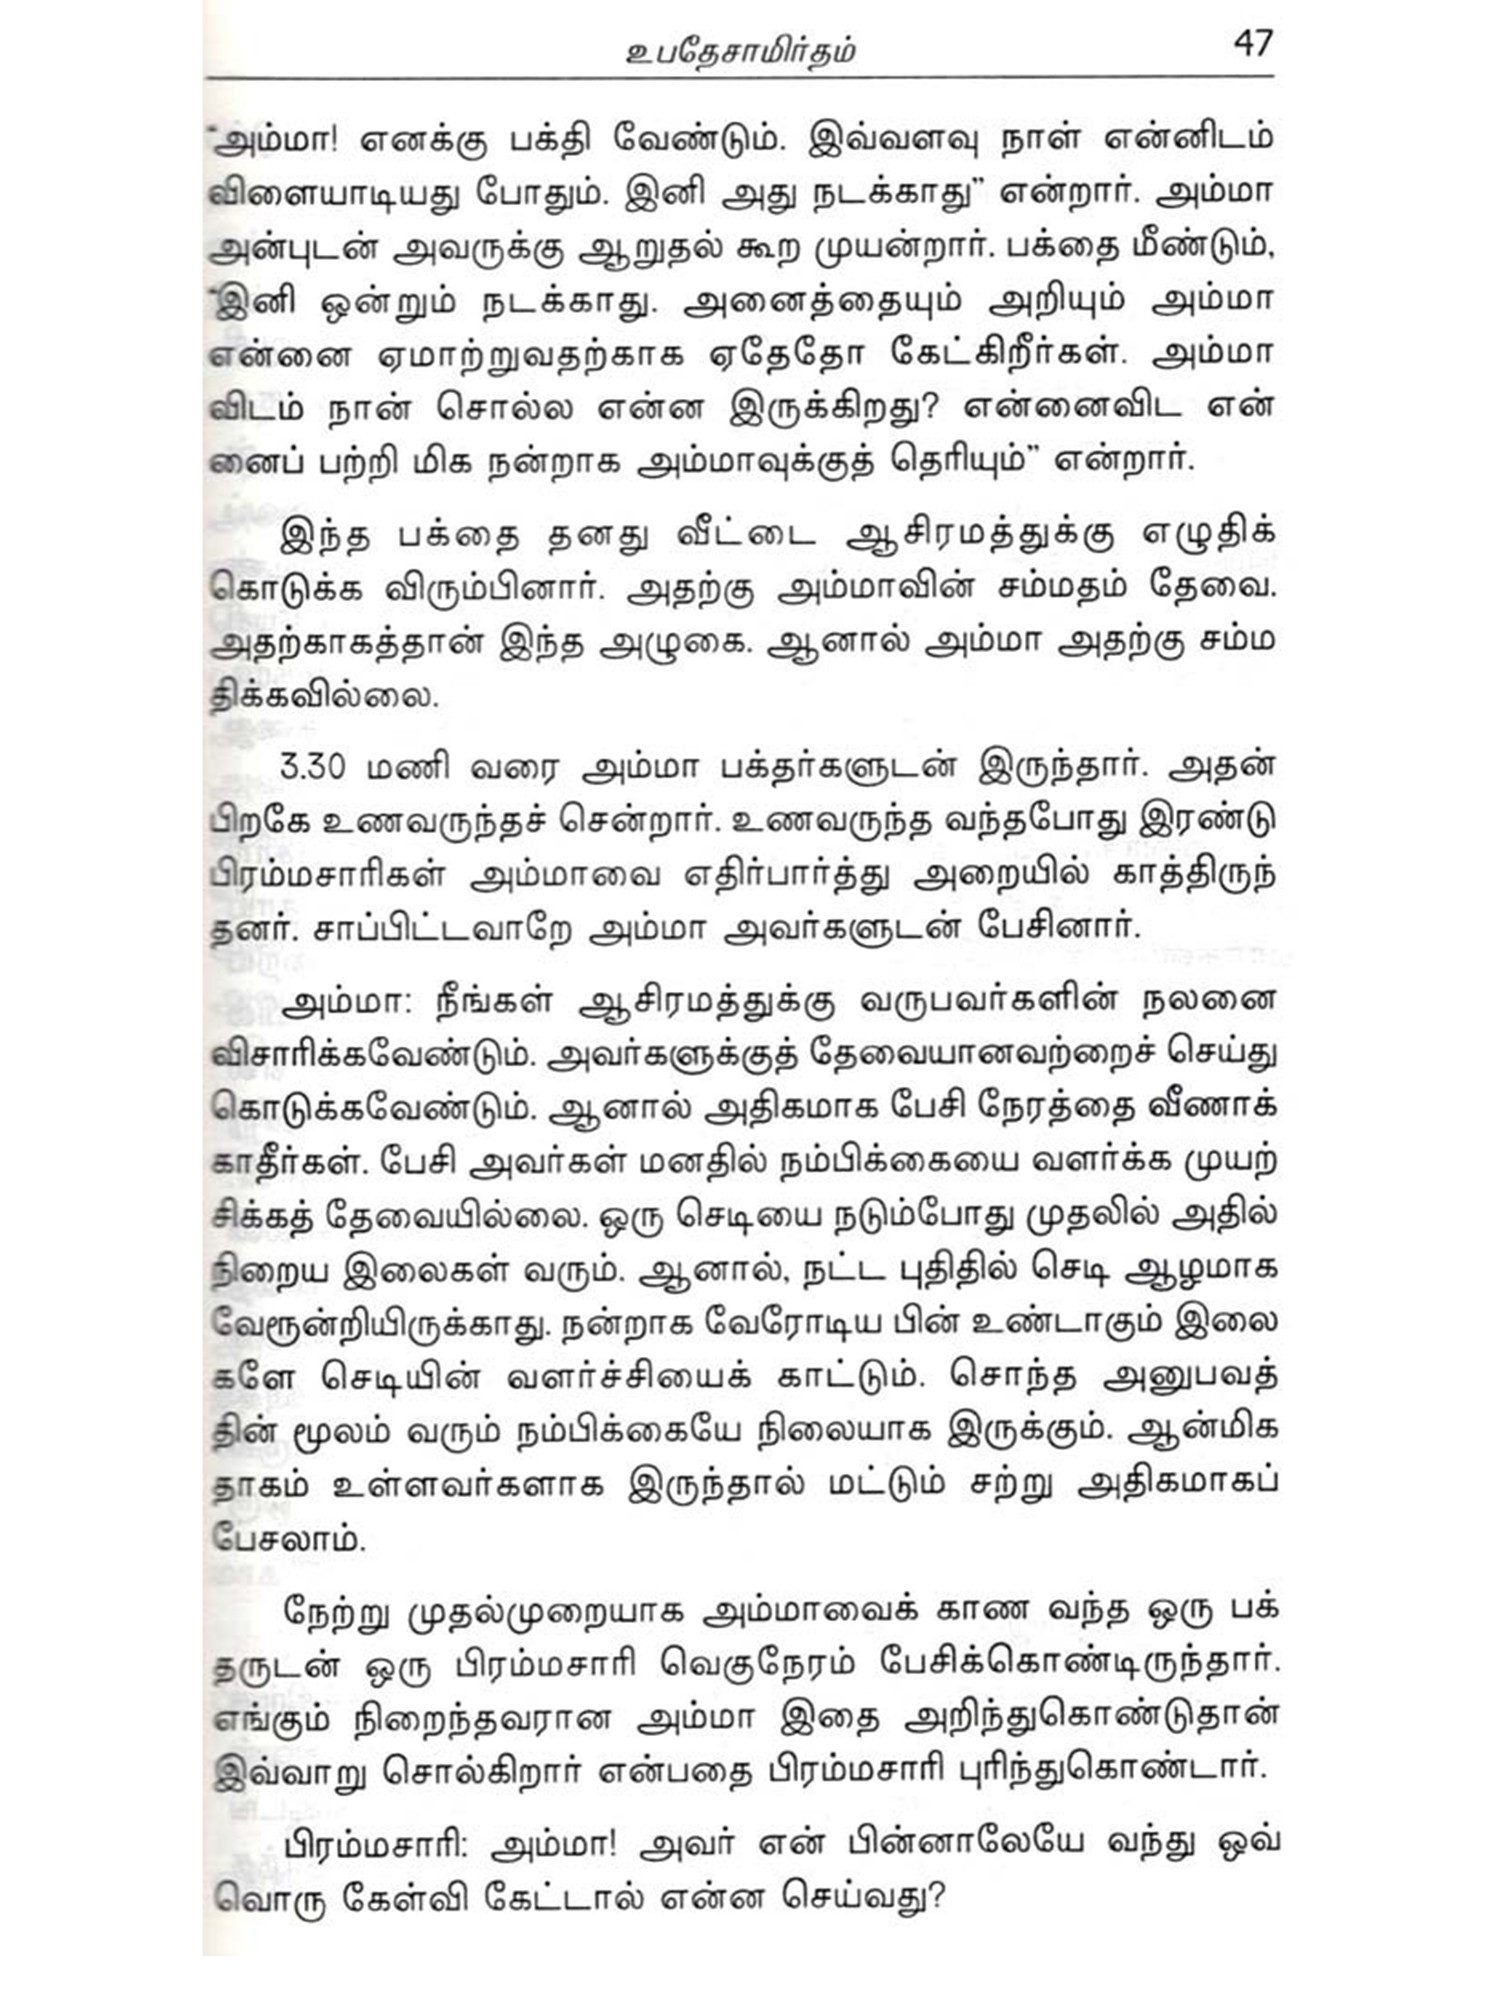 உபதேசாமிர்தம் 47
“அம்மா! எனக்கு பக்தி வேண்டும். இவ்வளவு நாள் என்னிடம்
விளையாடியது போதும். இனி அது நடக்காது” என்றார். அம்மா
அன்புடன் அவருக்கு ஆறுதல் கூற முயன்றார். பக்தை மீண்டும்,
“இனி ஒன்றும் நடக்காது. அனைத்தையும் அறியும் அம்மா
என்னை ஏமாற்றுவதற்காக ஏதேதோ கேட்கிறீர்கள். அம்மா
விடம் நான் சொல்ல என்ன இருக்கிறது? என்னைவிட என்
னைப் பற்றி மிக நன்றாக அம்மாவுக்குத் தெரியும்” என்றார்.
இந்த பக்தை தனது வீட்டை ஆசிரமத்துக்கு எழுதிக்
கொடுக்க விரும்பினார். அதற்கு அம்மாவின் சம்மதம் தேவை.
அதற்காகத்தான் இந்த அழுகை. ஆனால் அம்மா அதற்கு சம்ம
திக்கவில்லை.
3.30 மணி வரை அம்மா பக்தர்களுடன் இருந்தார். அதன்
பிறகே உணவருந்தச் சென்றார். உணவருந்த வந்தபோது இரண்டு
பிரம்மசாரிகள் அம்மாவை எதிர்பார்த்து அறையில் காத்திருந்
தனர். சாப்பிட்டவாறே அம்மா அவர்களுடன் பேசினார்.
அம்மா: நீங்கள் ஆசிரமத்துக்கு வருபவர்களின் நலனை
விசாரிக்கவேண்டும். அவர்களுக்குத் தேவையானவற்றைச் செய்து
கொடுக்கவேண்டும். ஆனால் அதிகமாக பேசி நேரத்தை வீணாக்
காதீர்கள். பேசி அவர்கள் மனதில் நம்பிக்கையை வளர்க்க முயற்
சிக்கத் தேவையில்லை. ஒரு செடியை நடும்போது முதலில் அதில்
நிறைய இலைகள் வரும். ஆனால், நட்ட புதிதில் செடி ஆழமாக
வேரூன்றியிருக்காது. நன்றாக வேரோடிய பின் உண்டாகும் இலை
களே செடியின் வளர்ச்சியைக் காட்டும். சொந்த அனுபவத்
தின் மூலம் வரும் நம்பிக்கையே நிலையாக இருக்கும். ஆன்மிக
தாகம் உள்ளவர்களாக இருந்தால் மட்டும் சற்று அதிகமாகப்
பேசலாம்.
நேற்று முதல்முறையாக அம்மாவைக் காண வந்த ஒரு பக்
தருடன் ஒரு பிரம்மசாரி வெகுநேரம் பேசிக்கொண்டிருந்தார்.
எங்கும் நிறைந்தவரான அம்மா இதை அறிந்துகொண்டுதான்
இவ்வாறு சொல்கிறார் என்பதை பிரம்மசாரி புரிந்துகொண்டார்.
பிரம்மசாரி: அம்மா! அவர் என் பின்னாலேயே வந்து ஒவ்
வொரு கேள்வி கேட்டால் என்ன செய்வது?